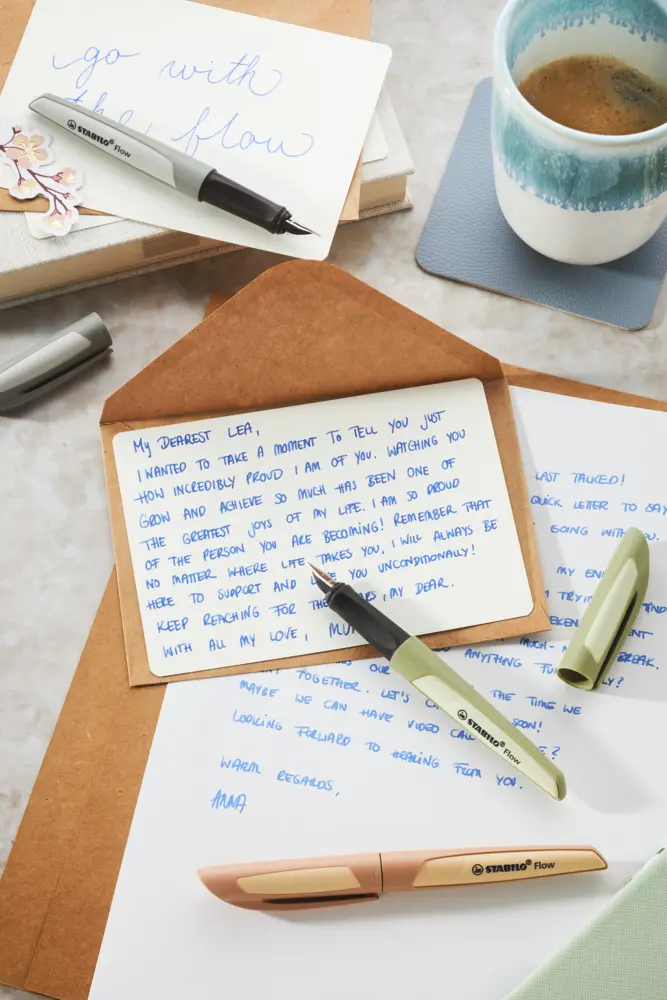 go with
the flow
STABILO® Flow
MY DEAREST LEA,
I WANTED TO TAKE A MOMENT TO TELL YOU JUST
HOW INCREDIBLY PROUD I AM OF YOU. WATCHING YOU
GROW AND ACHIEVE SO MUCH HAS BEEN ONE OF
THE GREATEST JOYS OF MY LIFE. I AM SO PROUD
OF THE PERSON YOU ARE BECOMING! REMEMBER THAT
NO MATTER WHERE LIFE TAKES YOU, I WILL ALWAYS BE
HERE TO SUPPORT AND YOU UNCONDITIONALLY!
KEEP REACHING FOR THE , MY DEAR.
WITH ALL MY LOVE,
LAST TALKED!
QUICK LETTER TO SAY
GOING WITH
MY
ANYTHING
TOGETHER. LET'S THE TIME WE
MAYBE WE CAN HAVE VIDEO SOON!
LOOKING FORWARD TO HEARING FROM YOU.
WARM REGARDS,
ANNA
STABILO® Flow
STABILO® Flow